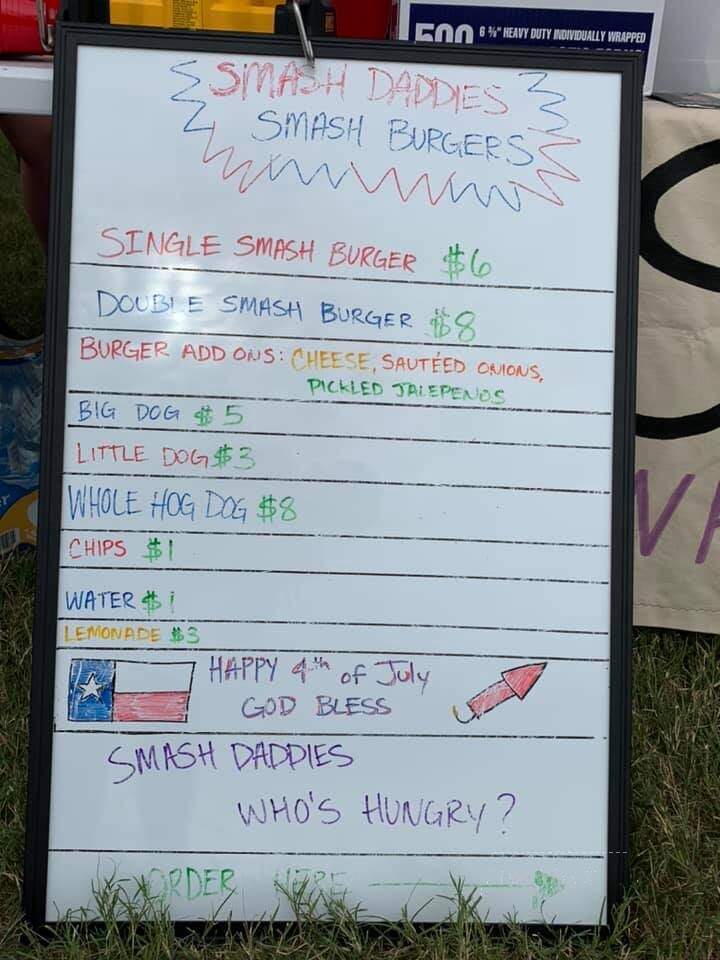 500 6 ⅜" HEAVY DUTY INDIVIDUALLY WRAPPED
SMASH DADDIES
SMASH BURGERS
SINGLE SMASH BURGER $6
DOUBLE SMASH BURGER $8
BURGER ADD ONS: CHEESE, SAUTÉED ONIONS,
PICKLED JALEPENOS
BIG DOG $5
LITTLE DOG $3
WHOLE HOG DOG $8
CHIPS $1
WATER $1
LEMONADE $3
HAPPY 4th of July
GOD BLESS
SMASH DADDIES
WHO'S HUNGRY?
ORDER HERE